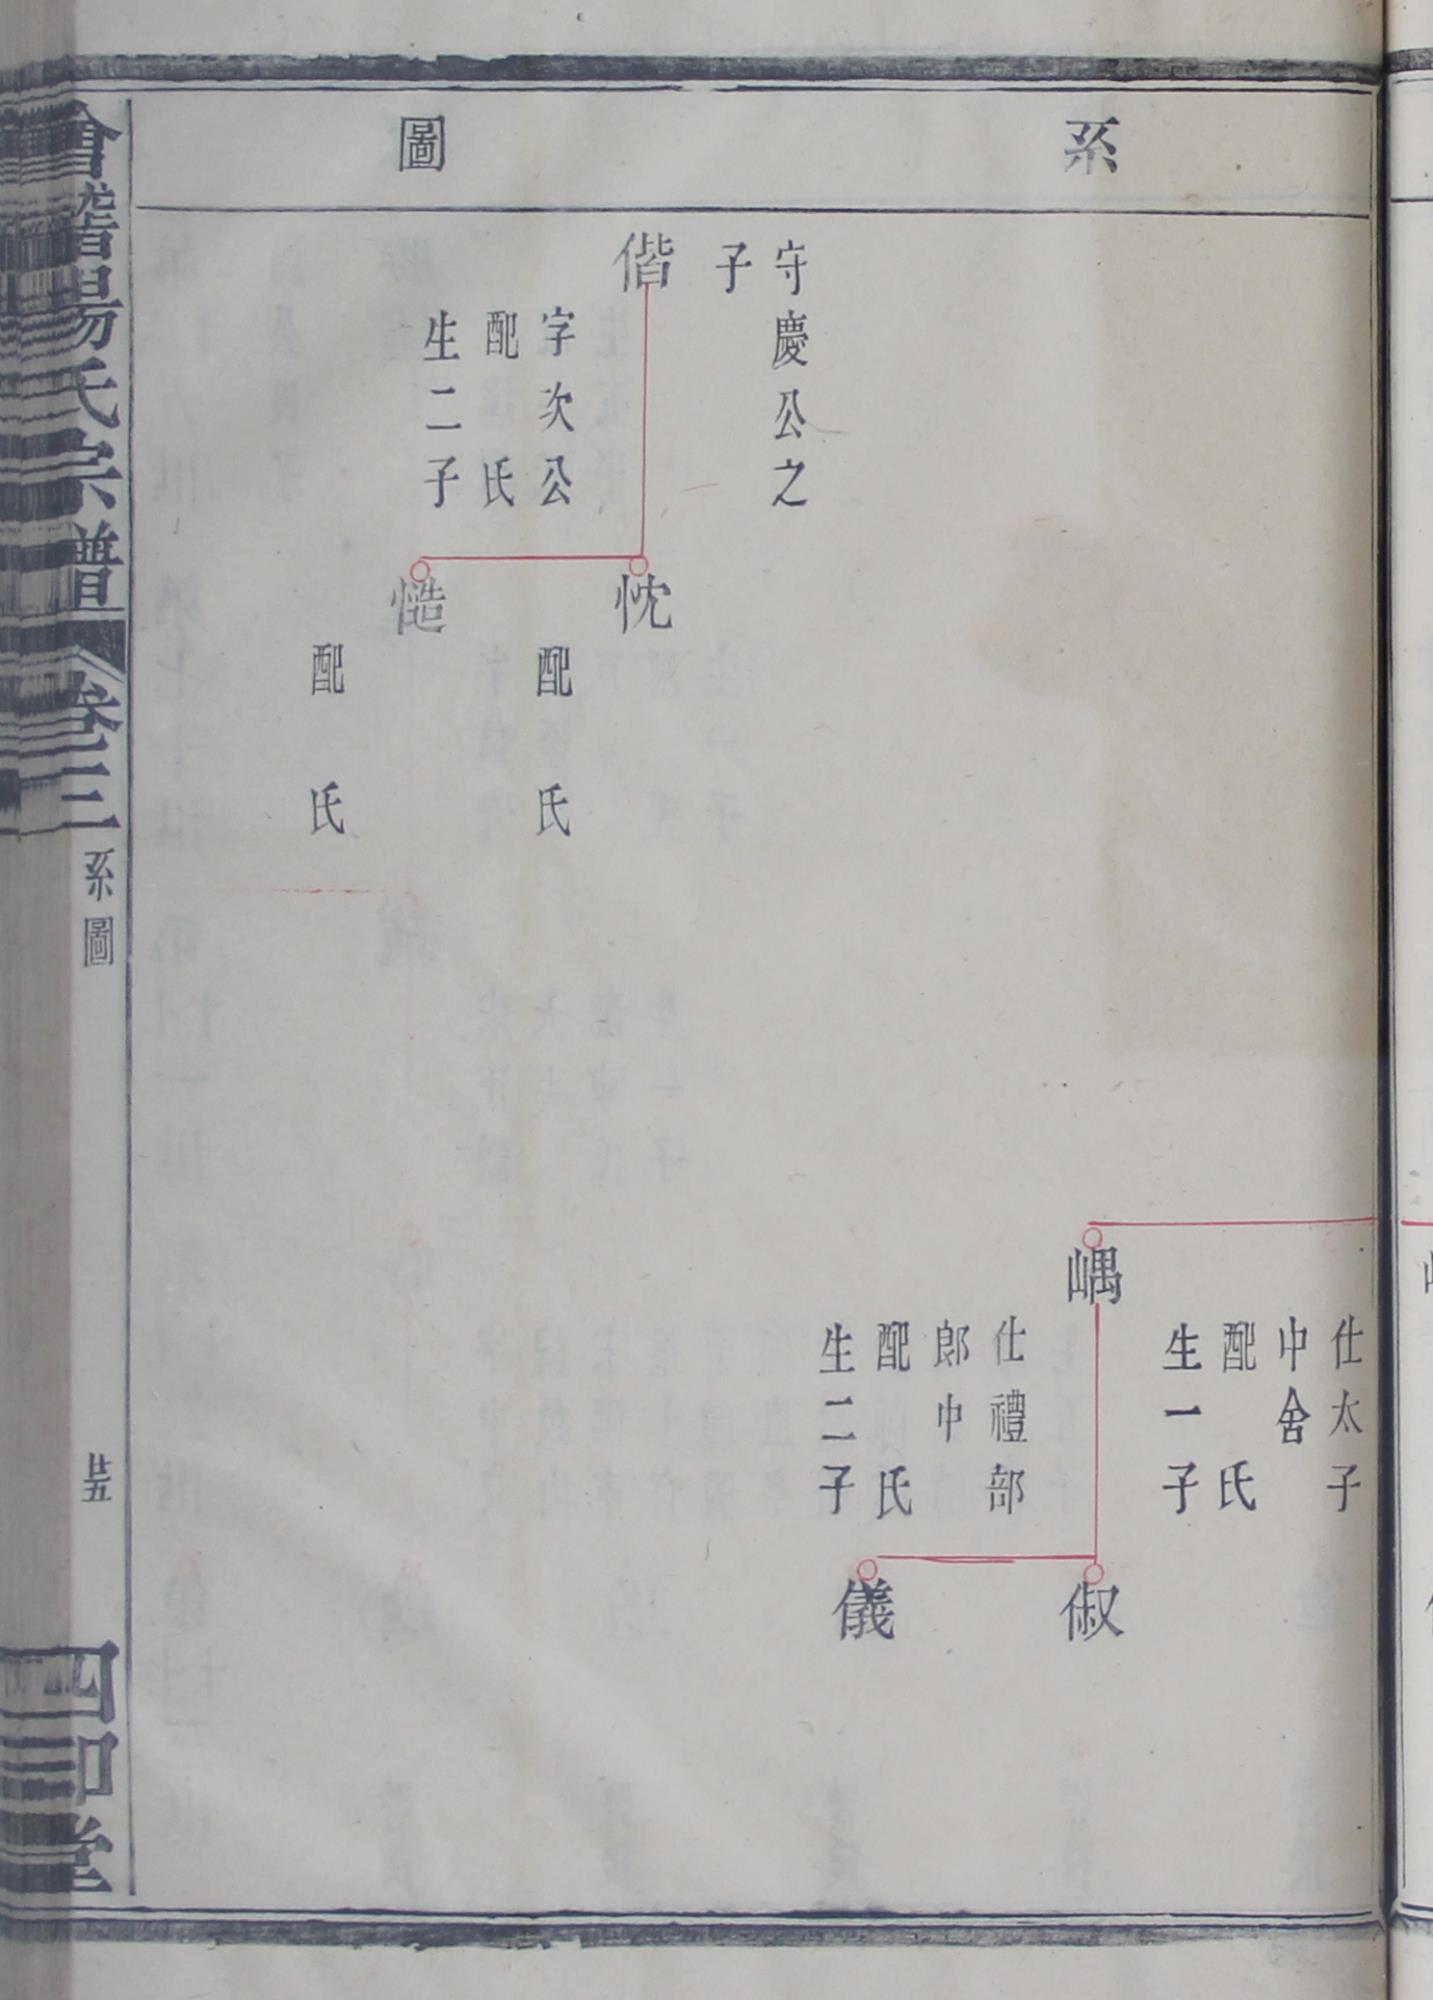 系圖
仕太子
中舍
配氏
生一子
嵎
仕禮部
郎中
配氏
生二子
俶
儀
守慶公之
子
偕
字次公
配氏
生二子
忱
配氏
慥
配氏
會稽楊氏宗譜
卷三
系圖
廿五
四知堂